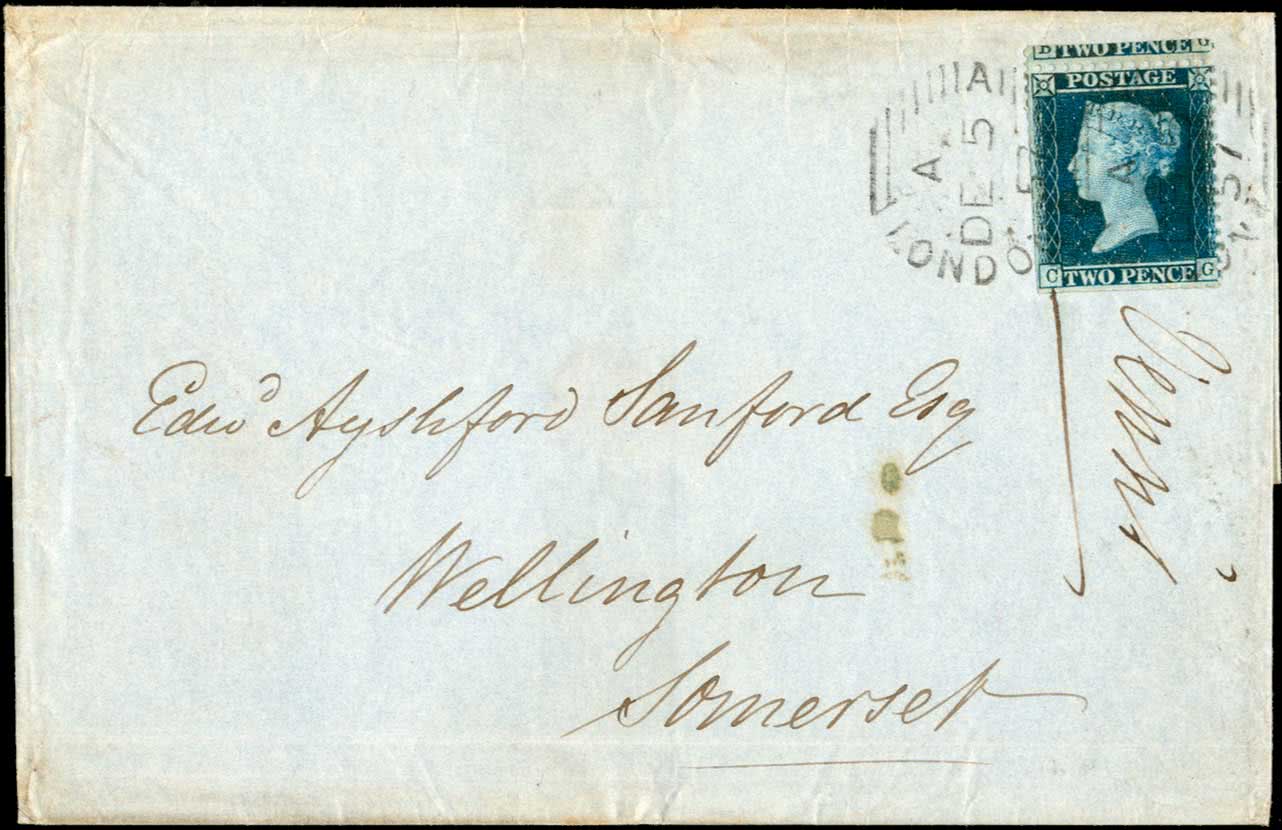 B TWO PENCE G
POSTAGE
C TWO PENCE G
A
A
DE 5
57
LONDO
A
Edwd Ayshford Sanford Esq
Wellington
Somerset